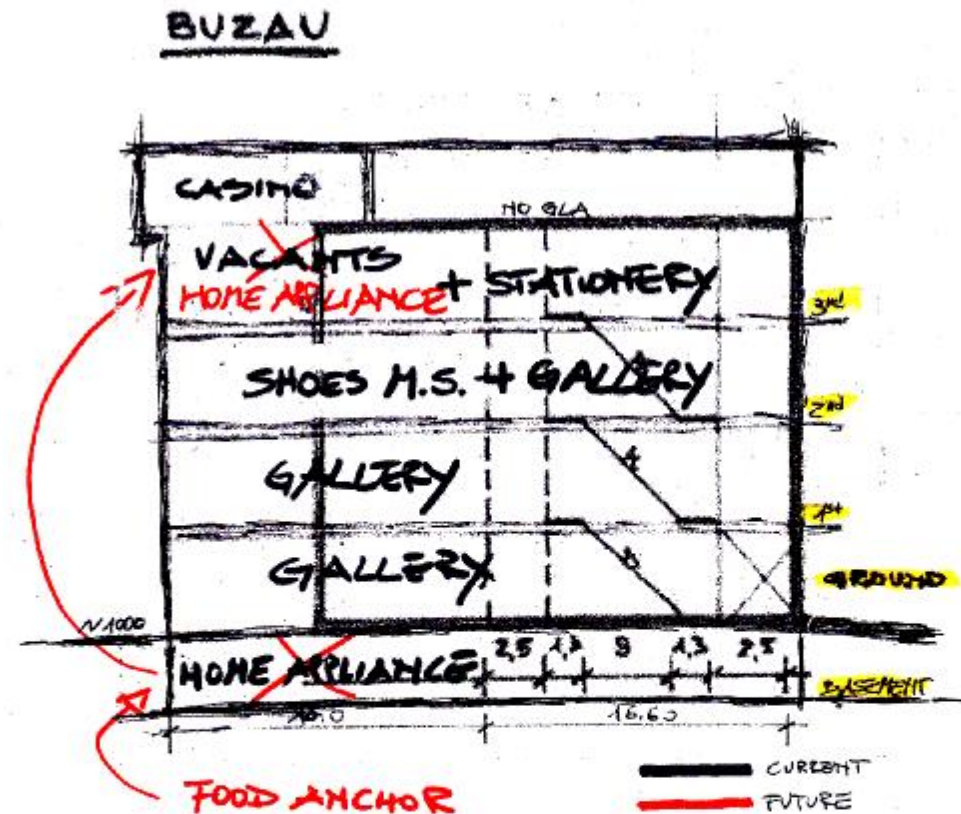 BUZAU
CASINO
NO GLA
VACANTS
HOME APPLIANCE + STATIONERY
3rd
SHOES M.S. + GALLERY
2nd
GALLERY
4
1st
GALLERY
6
GROUND
N 1000
HOME APPLIANCE
2,5 1,3 8 1,3 2,5
BASEMENT
16.60
FOOD ANCHOR
CURRENT
FUTURE